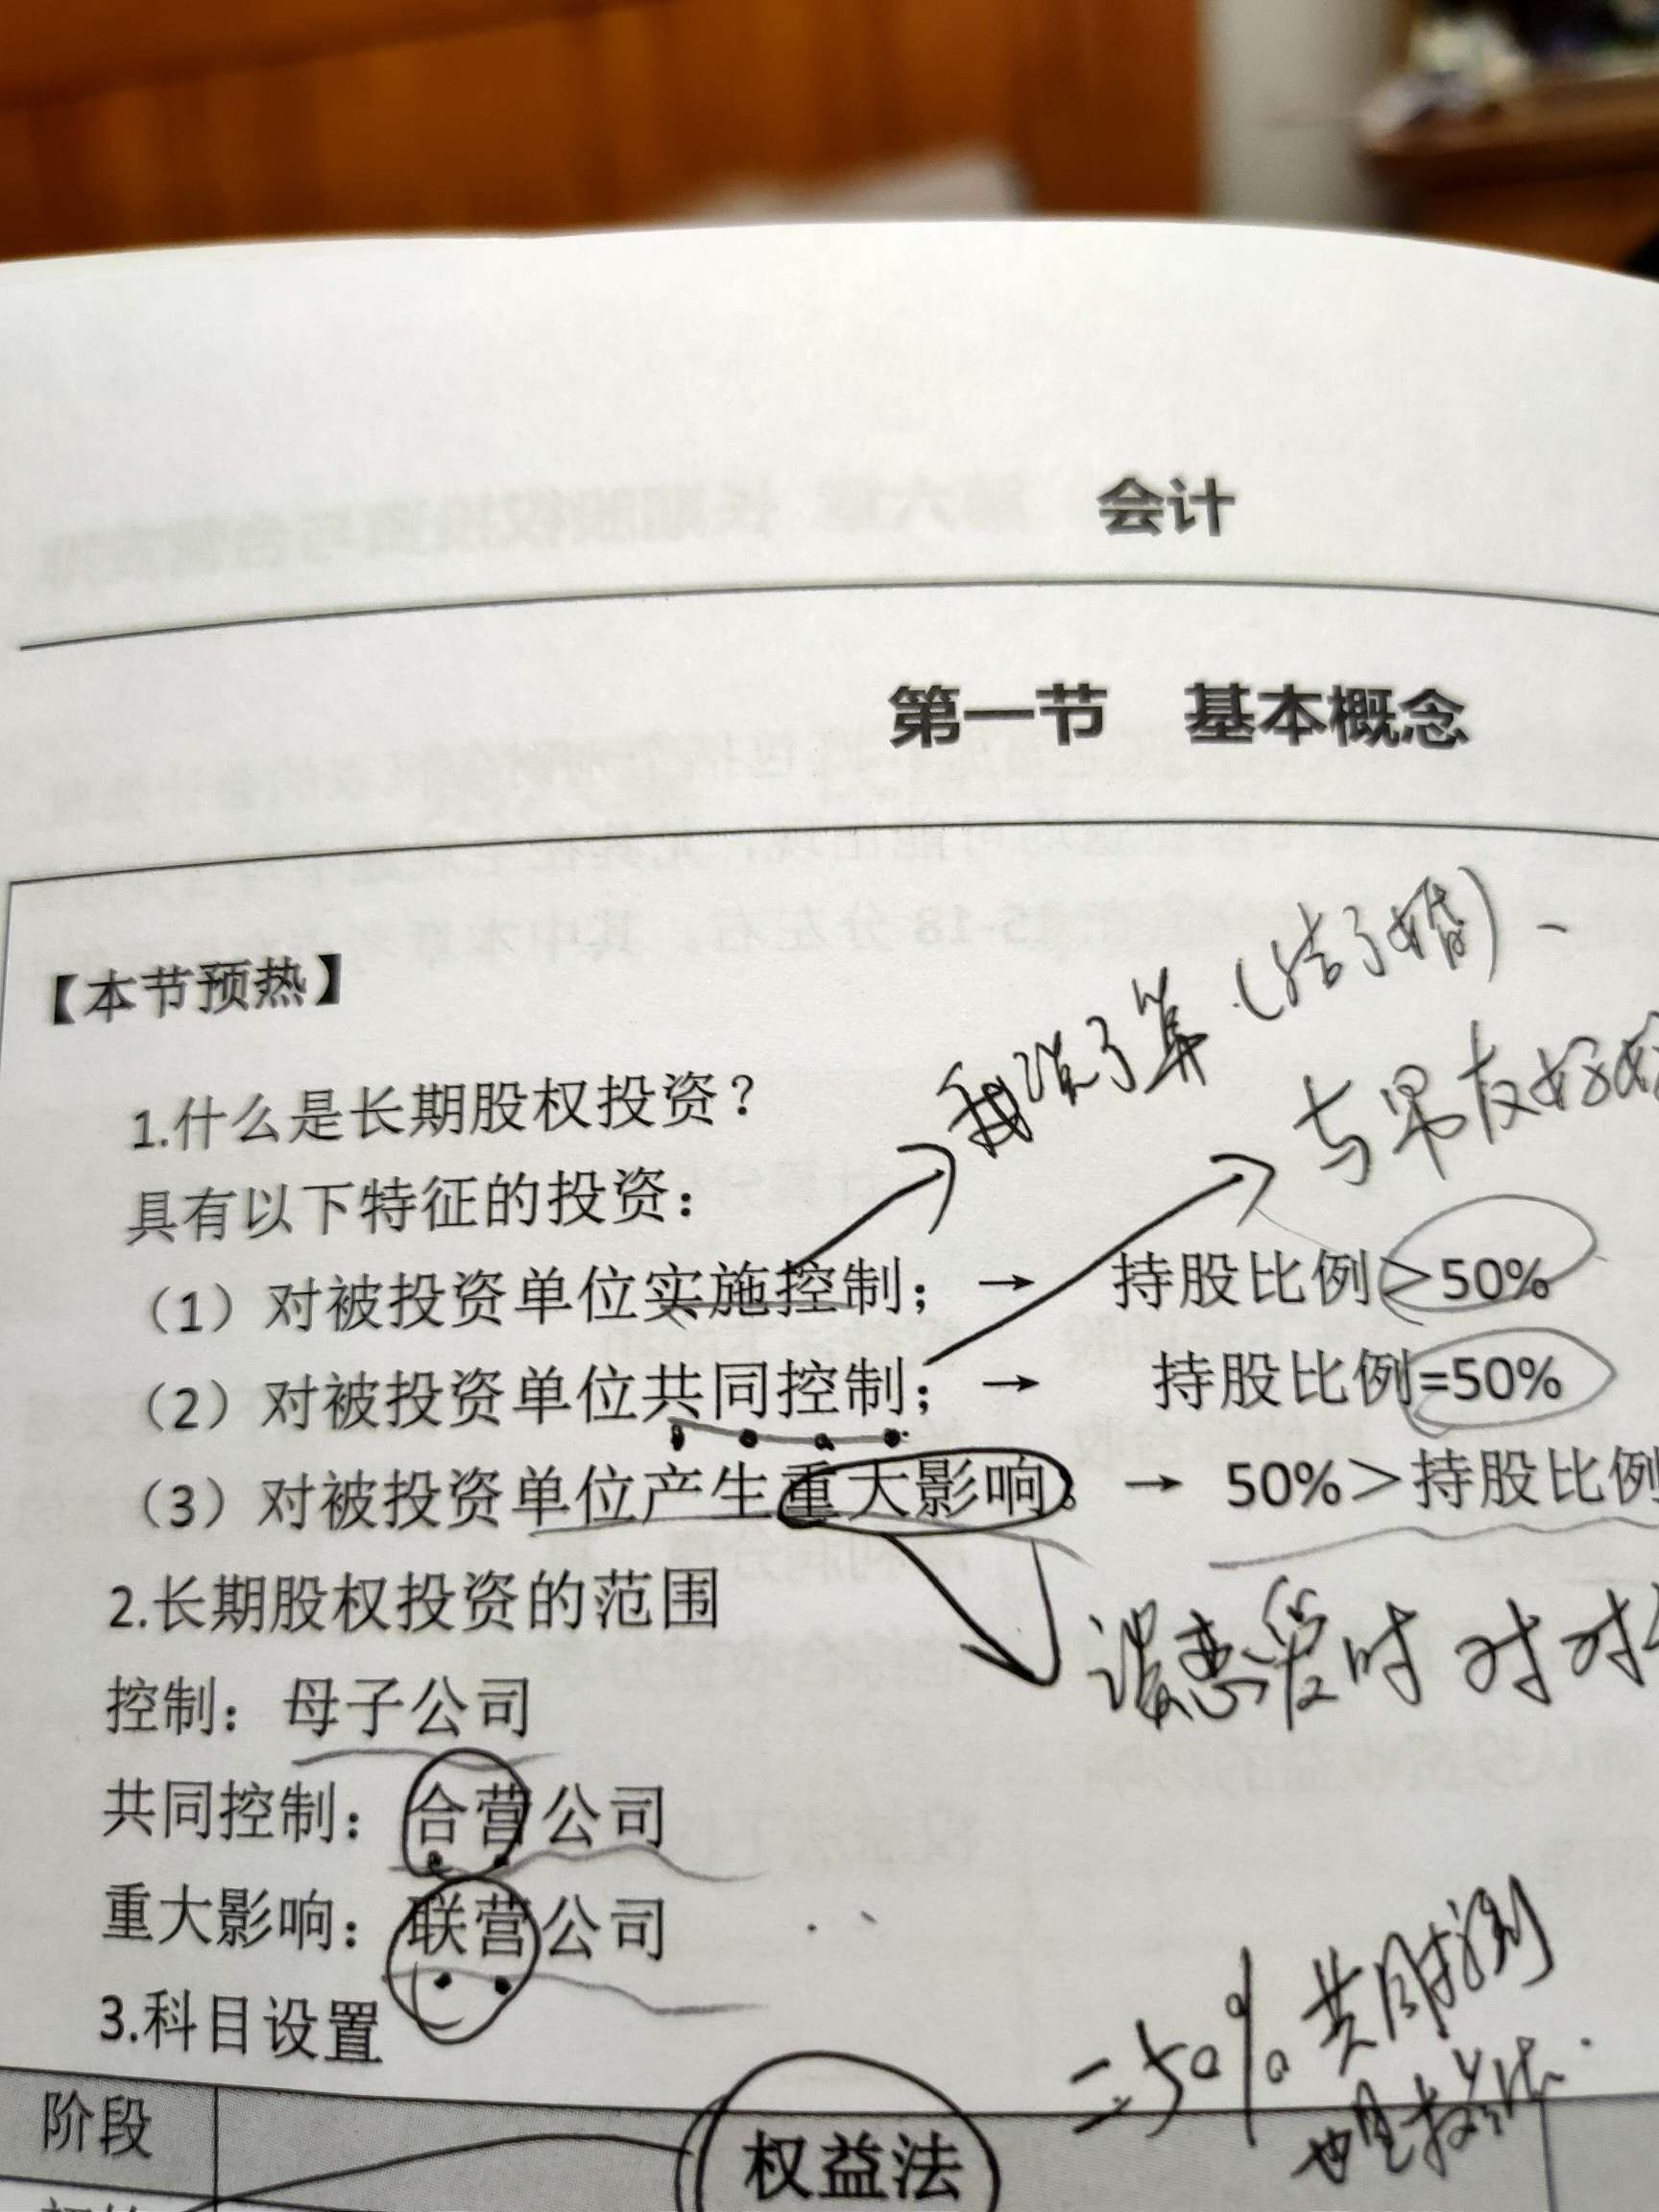 会计
第一节 基本概念
【本节预热】
我说了算（结了婚）、
1.什么是长期股权投资？
与男友好好
具有以下特征的投资：
（1）对被投资单位实施控制； → 持股比例＞50%
（2）对被投资单位共同控制； → 持股比例=50%
（3）对被投资单位产生重大影响。 → 50%＞持股比例
2.长期股权投资的范围
谈恋爱时 对对
控制：母子公司
共同控制：合营公司
重大影响：联营公司
3.科目设置
=50% 共同控制
阶段
权益法